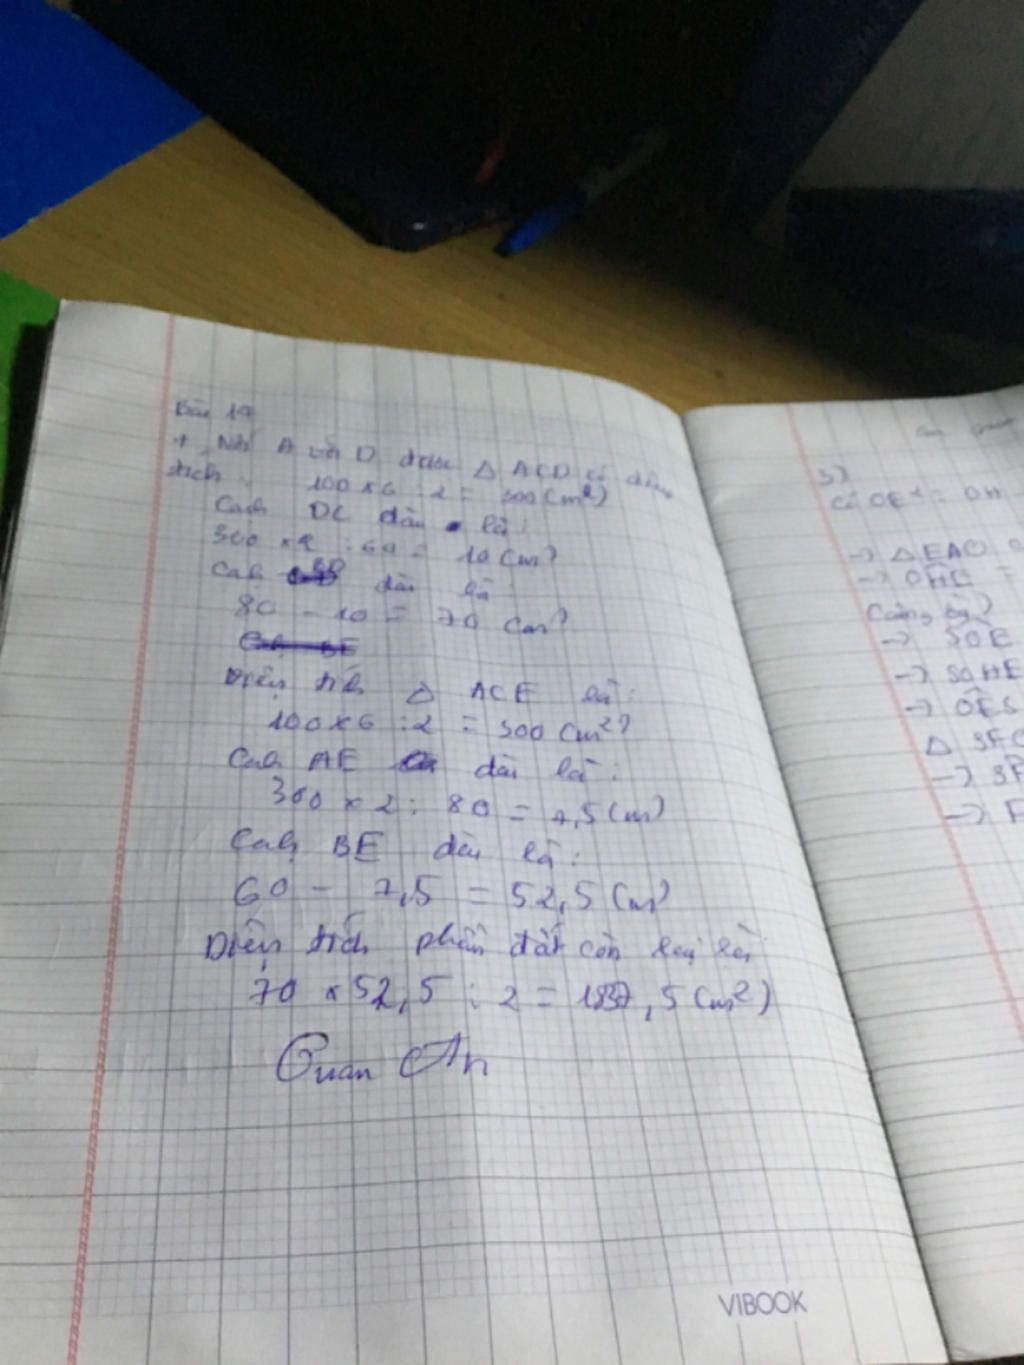 Bài 19
+ Nối A với D được △ ACD có diện
tích :
100 x 6 : 2 = 300 (m²)
Cạnh DC dài là :
300 x 2 : 60 = 10 (m)
Cạnh dài là :
80 - 10 = 70 (m)
Cạnh BE
Diện tích △ ACE là :
100 x 6 : 2 = 300 (m²)
Cạnh AE dài là :
300 x 2 : 80 = 7,5 (m)
Cạnh BE dài là :
60 - 7,5 = 52,5 (m)
Diện tích phần đất còn lại là
70 x 52,5 : 2 = 1837,5 (m²)
Quan An
VIBOOK
3)
Có OE² = OH
→ △ EAO
→ OHB =
→ SOE
→ SOHE
→ OES
△ SFO
→ SF
→ F